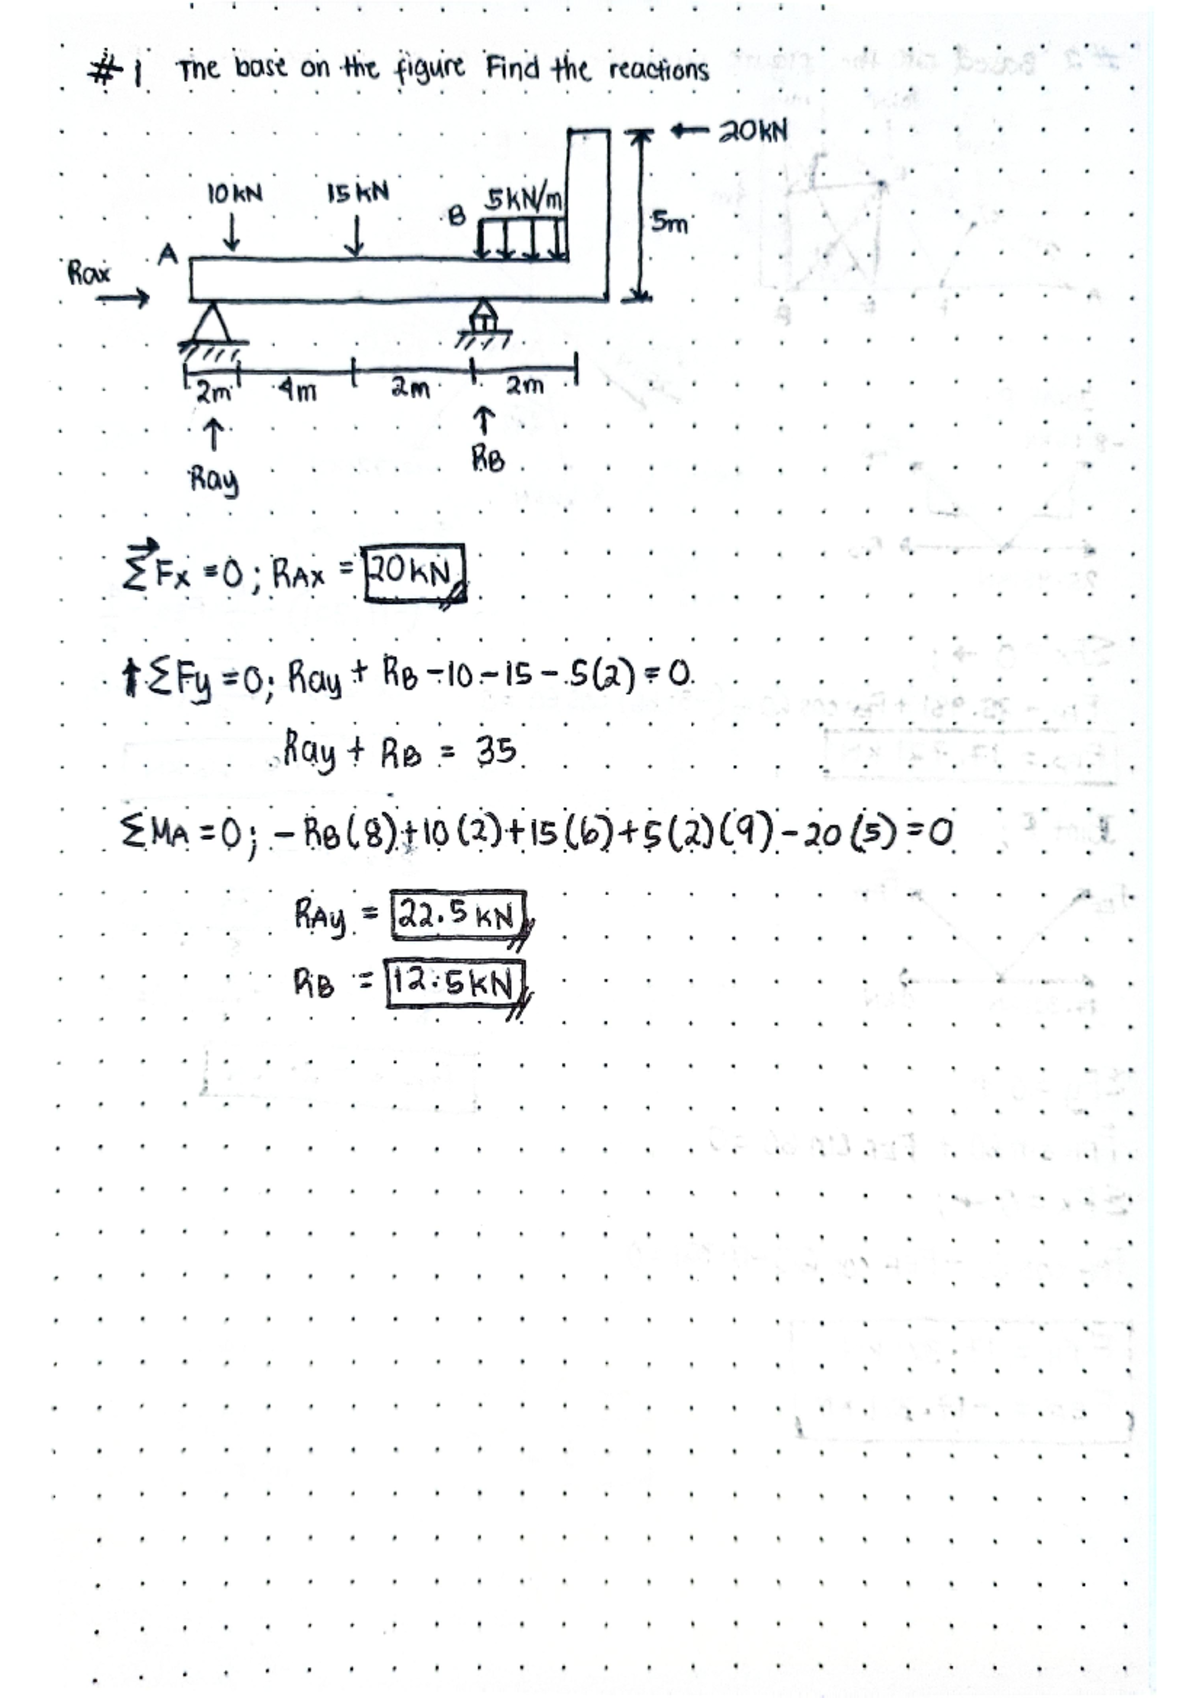 #1 The base on the figure Find the reactions
20KN
10KN 15KN 5KN/m
B
5m
A
Rax
2m 4m 2m 2m
Ray
RB
ΣFx = 0; RAx = 20KN
↑ΣFy = 0; Ray + RB - 10 - 15 - 5(2) = 0
Ray + RB = 35
ΣMA = 0; - RB(8) + 10(2) + 15(6) + 5(2)(9) - 20(5) = 0
RAy = 22.5 KN
RB = 12.5KN